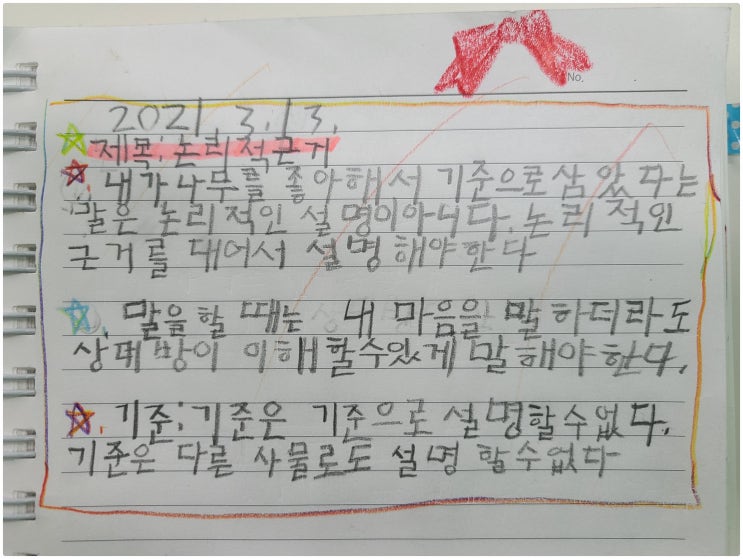 No.
2021 3.13.
제목:논리적근거
내가나무를 좋아해서 기준으로삼았다는
말은 논리적인 설명이아니다.논리적인
근거를 대어서 설명해야한다
말을할 때는 내 마음을 말하더라도
상대방이 이해할수있게 말해야한다.
기준:기준은 기준으로 설명할수없다.
기준은 다른 사물로도 설명 할수없다